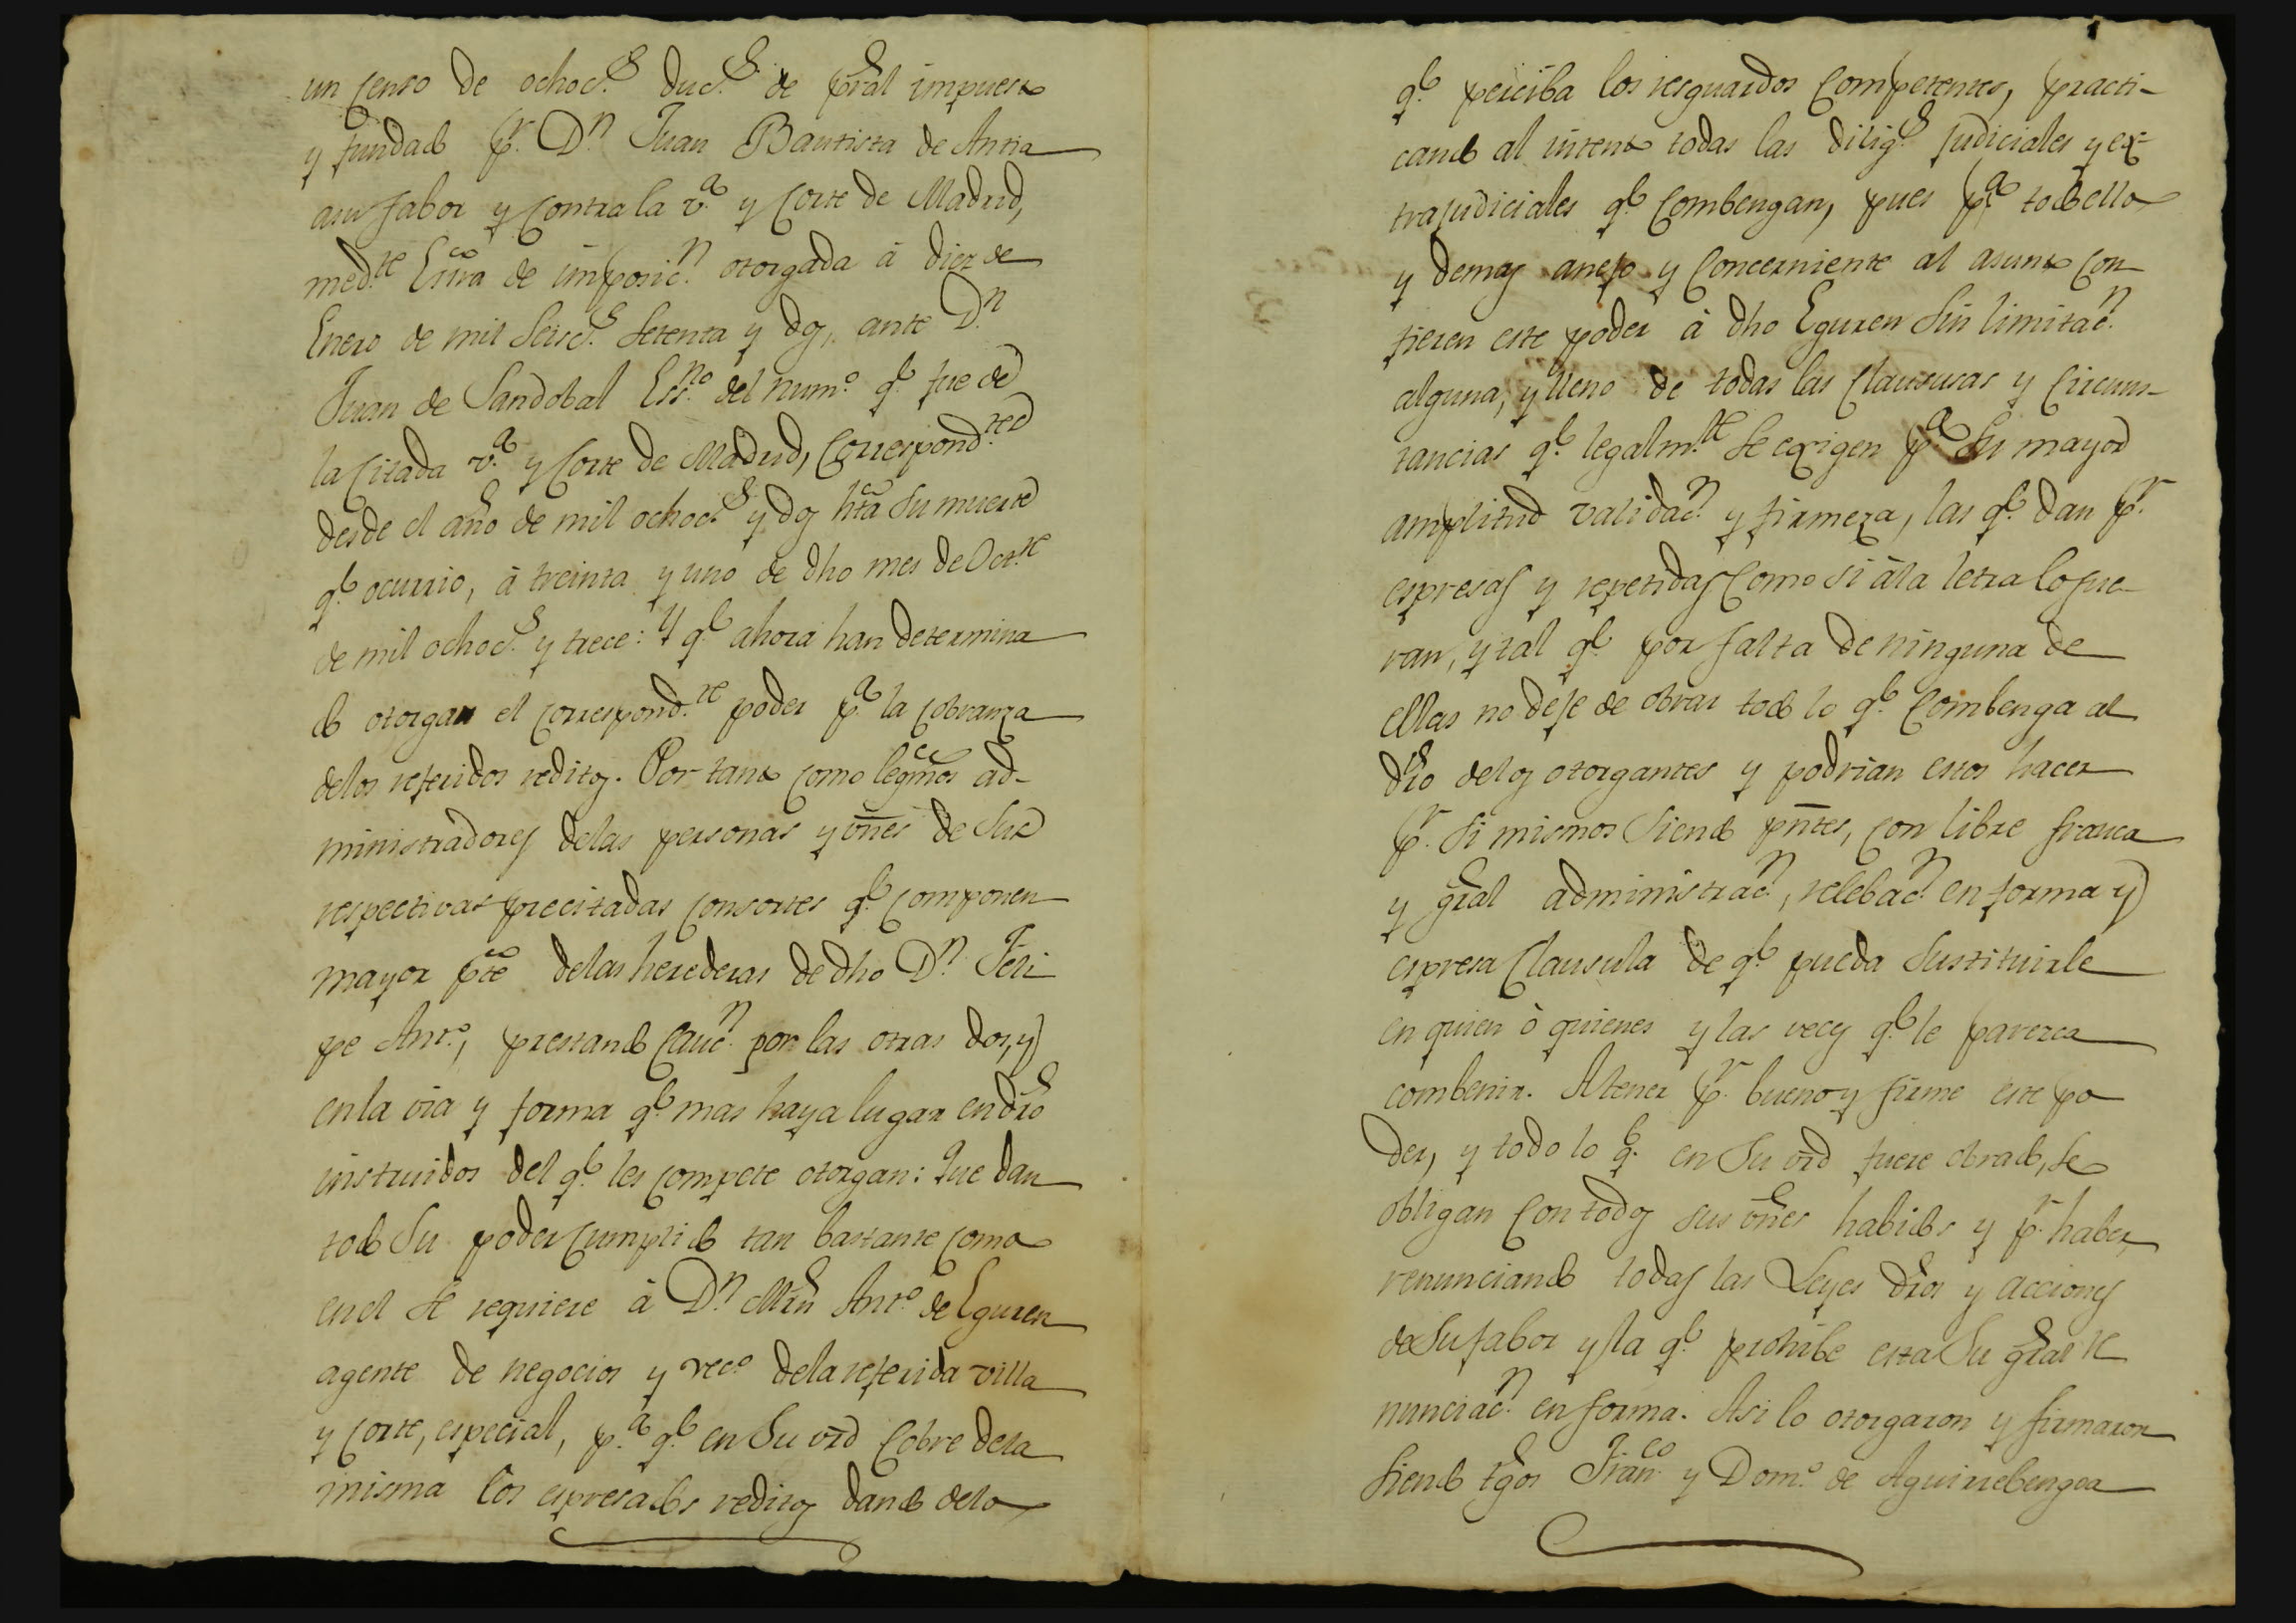 un censo de ochocs. ducs. de pral impuesto
y fundado pr. Dn. Juan Bautista de Antia
asu fabor y contra la va. y Corte de Madrid,
medte. Essra de imposicn. otorgada á diez de
Enero de mil seiscs. setenta y dos, ante Dn.
Juan de Sandobal Essno. del numo. qe. fue de
la citada va. y Corte de Madrid, correspondtes.
desde el año de mil ochocs. y dos hta su muerte
qe. ocurrio, á treinta y uno de dho mes de Octre.
de mil ochocs. y trece: Y qe. ahora han determina
do otorgar el correspondte. poder pa. la cobranza
delos referidos reditos. Por tanto como legmos ad-
ministradores delas personas y vnes de sus
respectivas precitadas consortes qe. componen
mayor pte delas herederas de dho Dn. Feli
pe Anto., prestando caucn. por las otras dos, y
enla via y forma qe. mas haya lugar en dro
instruidos del qe. les compete otorgan: Que dan
todo su poder cumplido tan bastante como
en el se requiere á Dn. Mrn Anto. de Eguren
agente de negocios y veco. dela referida villa
y corte, especial, pa. qe. en su vrd cobre dela
misma los espresados reditos dando delo
qe. perciba los resguardos competentes, practi-
cando al intento todas las diligs. judiciales y ex-
trajudiciales qe. combengan, pues pa. todo ello
y demas anejo y concerniente al asunto con
fieren este poder á dho Eguren sin limitacn.
alguna, y lleno de todas las clausulas y circuns-
tancias qe. legalmte. se exigen pa. su mayor
amplitud validacn. y firmeza, las qe. dan pr.
espresas y repetidas como si ála letra lo fue-
ran, y tal qe. por falta de ninguna de
ellas no deje de obrar todo lo qe. combenga al
dro delos otorgantes y podrian estos hacer
pr. si mismos siendo pntes, con libre franca
y gral administracn., relebacn. en forma y
espresa clausula de qe. pueda sustituirle
en quien ó quienes y las veces qe. le parezca
combenir. A tener pr. bueno y firme este po
der, y todo lo q. en su vrd fuere obrado, se
obligan con todos sus vnes habidos y pr. haber,
renunciando todas las Leyes dros y acciones
de su fabor y la qe. prohibe esta su gral re
nunciacn. en forma. Asi lo otorgaron y firmaron
siendo tgos Franco. y Domo. de Aguirrebengoa